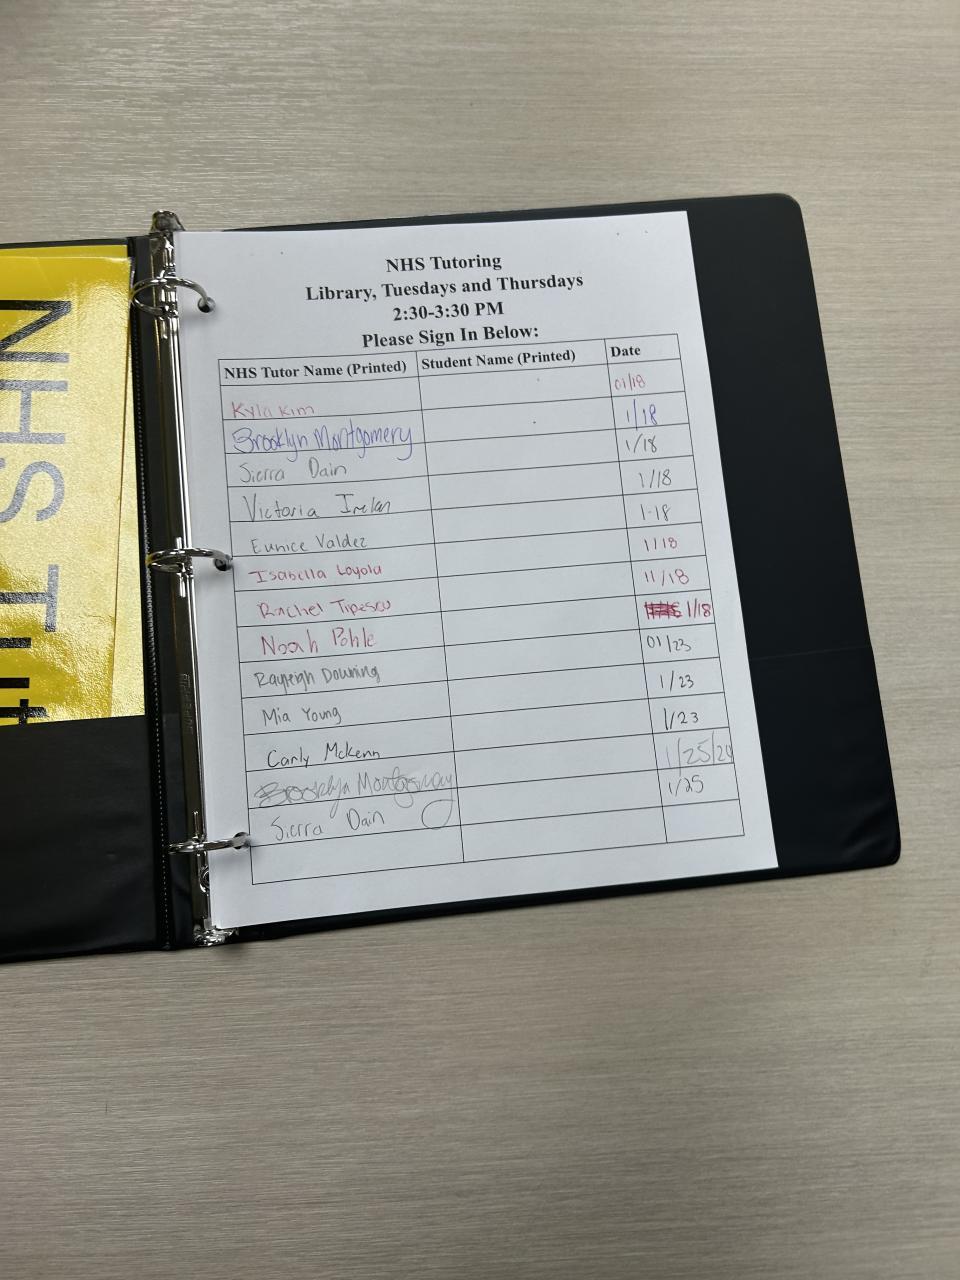 NHS Tutoring
Library, Tuesdays and Thursdays
2:30-3:30 PM
Please Sign In Below:
NHS Tutor Name (Printed) Student Name (Printed) Date
Kyla Kim 01/18
Brooklyn Montgomery 1/18
Sierra Dain 1/18
Victoria Irelan 1/18
Eunice Valdez 1-18
Isabella Loyola 1/18
Rachel Tipescu 11/18
Noah Pohle 1/18
Rayleigh Downing 01/23
Mia Young 1/23
Carly McKenn 1/23
Brooklyn 1/25/24
Sierra Dain 1/25
NHS